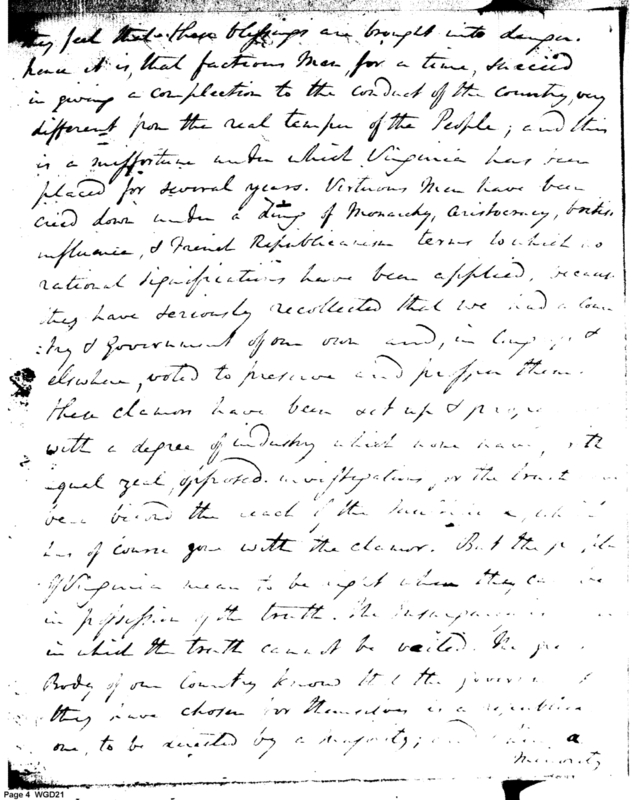 they feel that these blessings are brought into danger.
hence it is, that factious Men, for a time, succeed
in giving a complection to the conduct of the country, very
different from the real temper of the People; and this
is a misfortune under which Virginia has been
placed for several years. Virtuous Men have been
cried down under a ding of Monarchy, Aristocracy, british
influence, & French Republicanism terms to which no
rational significations have been applied, because
they have seriously recollected that we had a Coun
:try & Government of our own and, in &
elsewhere, voted to preserve and them.
these clamors have been set up &
with a degree of industry which none have,
equal zeal, opposed. investigations, or the truth
been beyond the reach of the
has of course gone with the clamor. But the people
of Virginia mean to be right when they can be
in possession of the truth. The
in which the truth cannot be vailed. The
Body of our Country know that the
they have chosen for themselves is a republican
one, to be directed by a majority; and a
minority
Page 4 WGD21